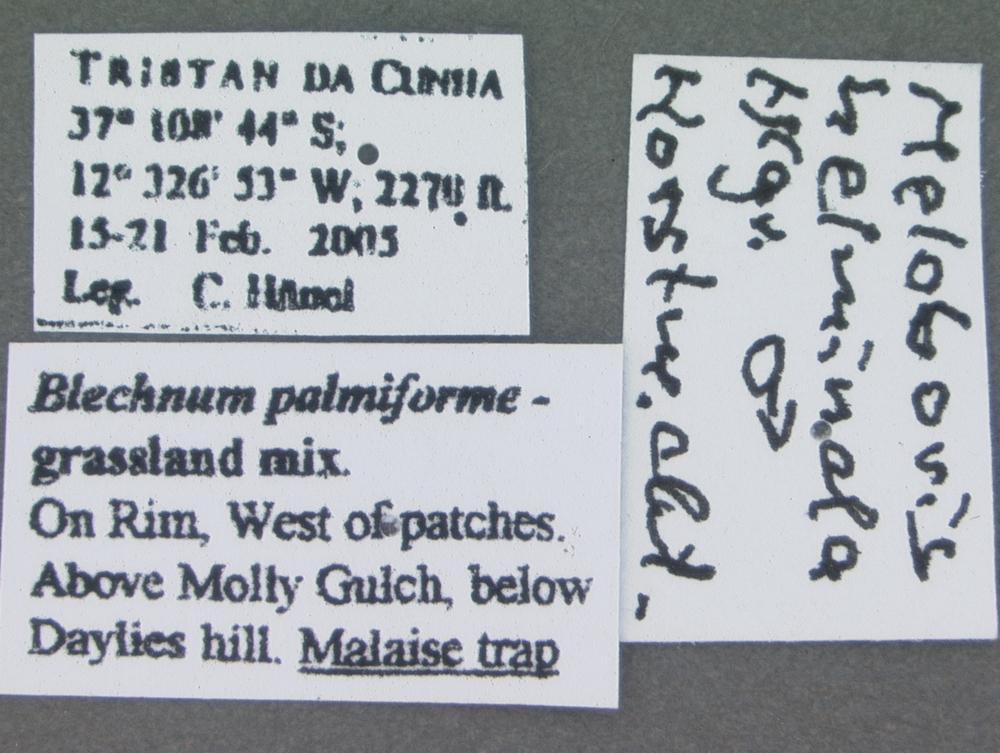 TRISTAN DA CUNHA
37° 108' 44" S;
12° 326' 53" W; 2270 ft.
15-21 Feb. 2005
Leg. C. Hänel
Blechnum palmiforme -
grassland mix.
On Rim, West of patches.
Above Molly Gulch, below
Daylies hill. Malaise trap
Meloboris
♂